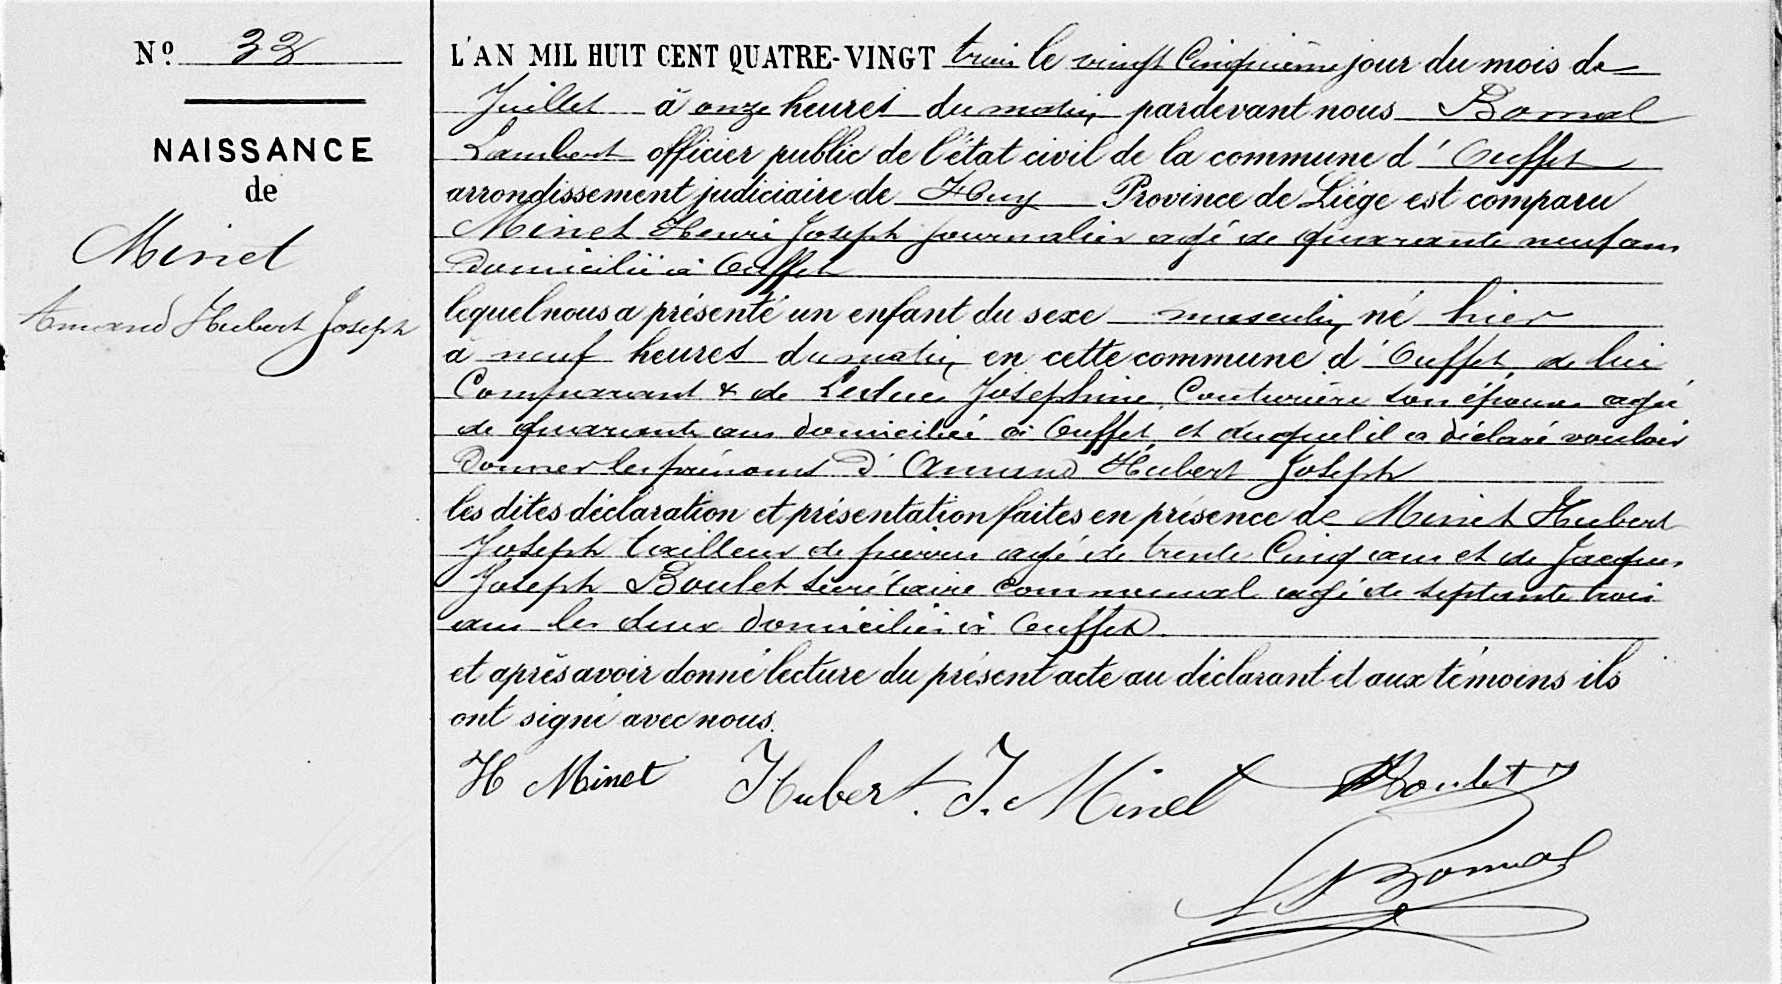 Nº 33
NAISSANCE
de
Minet
Amand Hubert Joseph
L'AN MIL HUIT CENT QUATRE-VINGT trois le vingt Cinquième jour du mois de
Juillet à onze heures du matin pardevant nous Bomal
Lambert officier public de l'état civil de la commune d'Ouffet
arrondissement judiciaire de Huy Province de Liége est comparu
Minet Henri Joseph journalier agé de quarante neuf ans
domicilié à Ouffet
lequel nous a présenté un enfant du sexe masculin né hier
à neuf heures du matin en cette commune d'Ouffet de lui
Comparant & de Josephine, Couturière son épouse agée
de quarante ans domiciliée à Ouffet et duquel il a déclaré vouloir
donner les prénoms d'Amand Hubert Joseph
les dites déclaration et présentation faites en présence de Minet Hubert
Joseph tailleur de pierres agé de trente Cinq ans et de Jacques
Joseph Boulet secrétaire communal agé de septante trois
ans les deux domiciliés à Ouffet
et après avoir donné lecture du présent acte au déclarant et aux témoins ils
ont signé avec nous.
H Minet Hubert. J. Minet Boulet
L Bomal